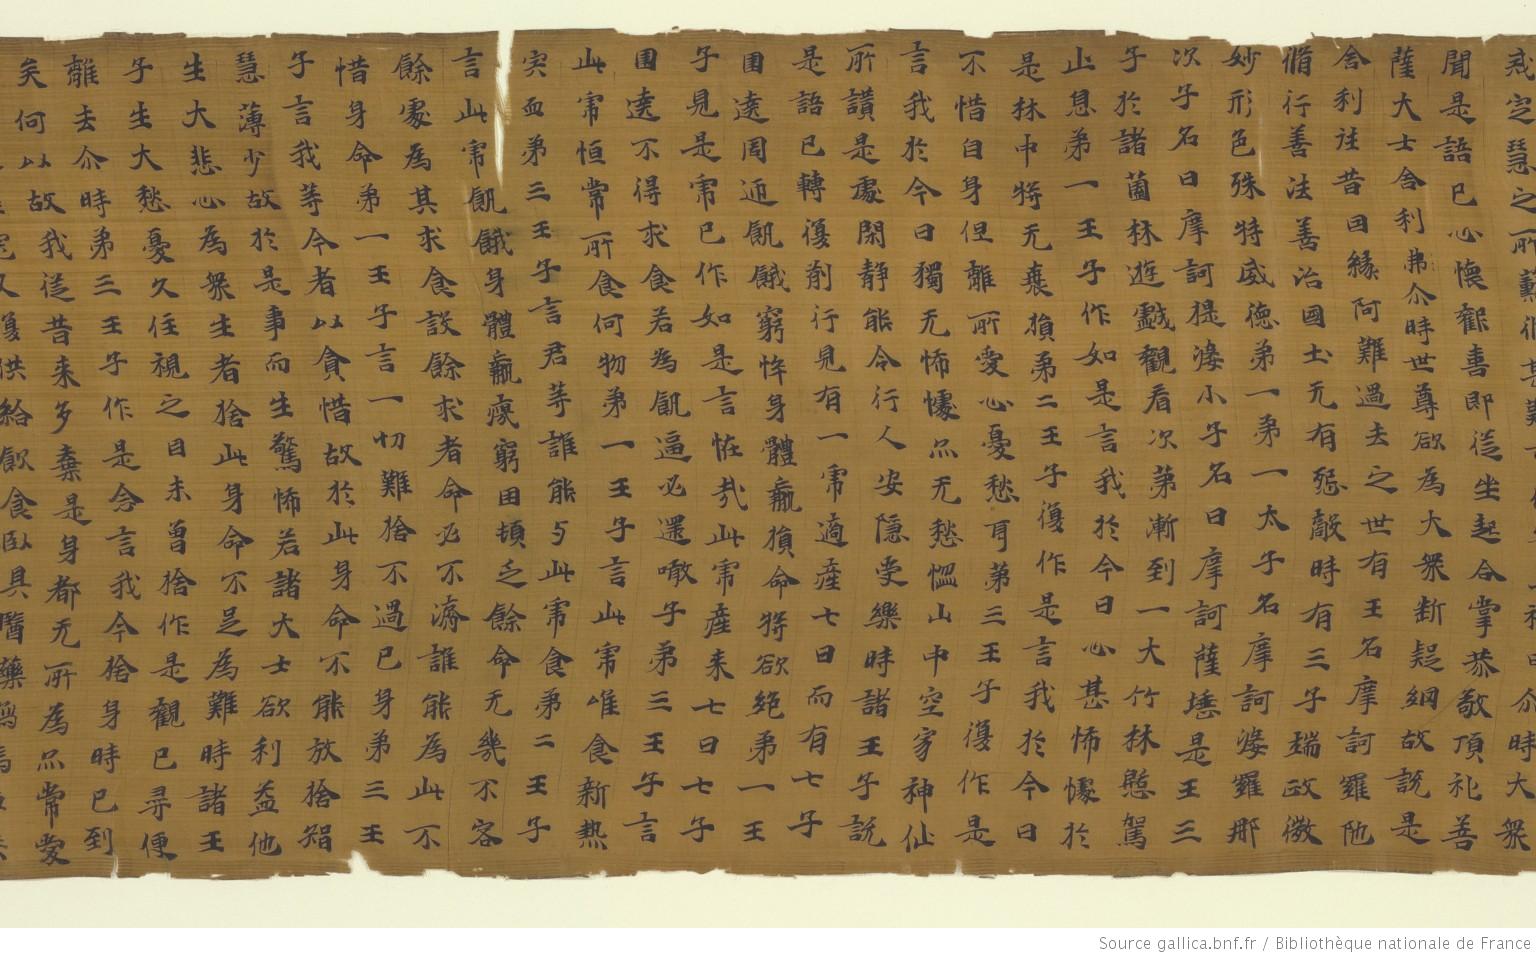 戒定慧之所薰修某難
聞是語已心懷歡喜即從坐起合掌恭敬頂礼善
薩大士舍利弗尒時世尊欲為大衆断疑網故說是
舍利往昔因緣阿難過去之世有王名摩訶羅陁
脩行善法善治國土无有怨敵時有三子端政微
妙形色殊特威德弟一弟一太子名摩訶波羅那
次子名曰摩訶提婆小子名曰摩訶薩埵是王三
子於諸薗林遊戲觀看次第漸到一大竹林憩駕
止息弟一王子作如是言我於今日心甚怖懅於
是林中將无衰損弟二王子復作是言我於今日
不惜自身但離所愛心憂愁耳弟三王子復作是
言我於今日獨无怖懅亦无愁惱山中空穽神仙
所讚是處閑靜能令行人安隱受樂時諸王子說
是語已轉復前行見有一虎適產七日而有七子
圍遶周迊飢餓窮悴身體羸損命將欲絶弟一王
子見是虎已作如是言怪哉此虎產来七日七子
圍遶不得求食若為飢逼必還噉子弟三王子言
此虎恒常所食何物弟一王子言此虎唯食新熱
宍血弟三王子言君等誰能与此虎食弟二王子
言此虎飢餓身體羸瘦窮困頓乏餘命无幾不容
餘處為其求食設餘求者命必不濟誰能為此不
惜身命弟一王子言一切難捨不過己身弟三王
子言我等今者以貪惜故於此身命不能放捨智
慧薄少故於是事而生驚怖若諸大士欲利益他
生大悲心為衆生者捨此身命不足為難時諸王
子生大愁憂久住視之目未曾捨作是觀已尋便
離去尒時弟三王子作是念言我今捨身時已到
矣何以故我從昔来多棄是身都无所為亦常愛
供給飲食臥具醫藥